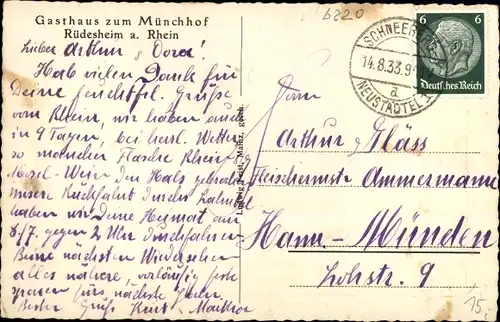 Gasthaus zum Münchhof
Rüdesheim a. Rhein
6220
Lieber Arthur, Dora!
Hab vielen Dank für
Deine Grüße
vom Rhein, wir haben auch
in 9 Tagen, bei herrl. Wetter
so manchen Flasche Rhein &
Mosel-Wein den Hals gebrochen
unsere Rückfahrt durchs Lahntal
haben wir Deine Heimat am
8./7. gegen 2 Uhr durchfahren
Beim nächsten Wiedersehen
alles nähere, vorläufig feste
sparen fürs nächste
Beste Grüße Kurt
Ludwig Mainz, gesch.
SCHNEEBERG
14.8.33.9
a
NEUSTÄDTEL
6 6
Deutsches Reich
Herrn
Arthur Gläss
Fleischermstr Ammermann
Hann.-Münden
Lohstr. 9
15,